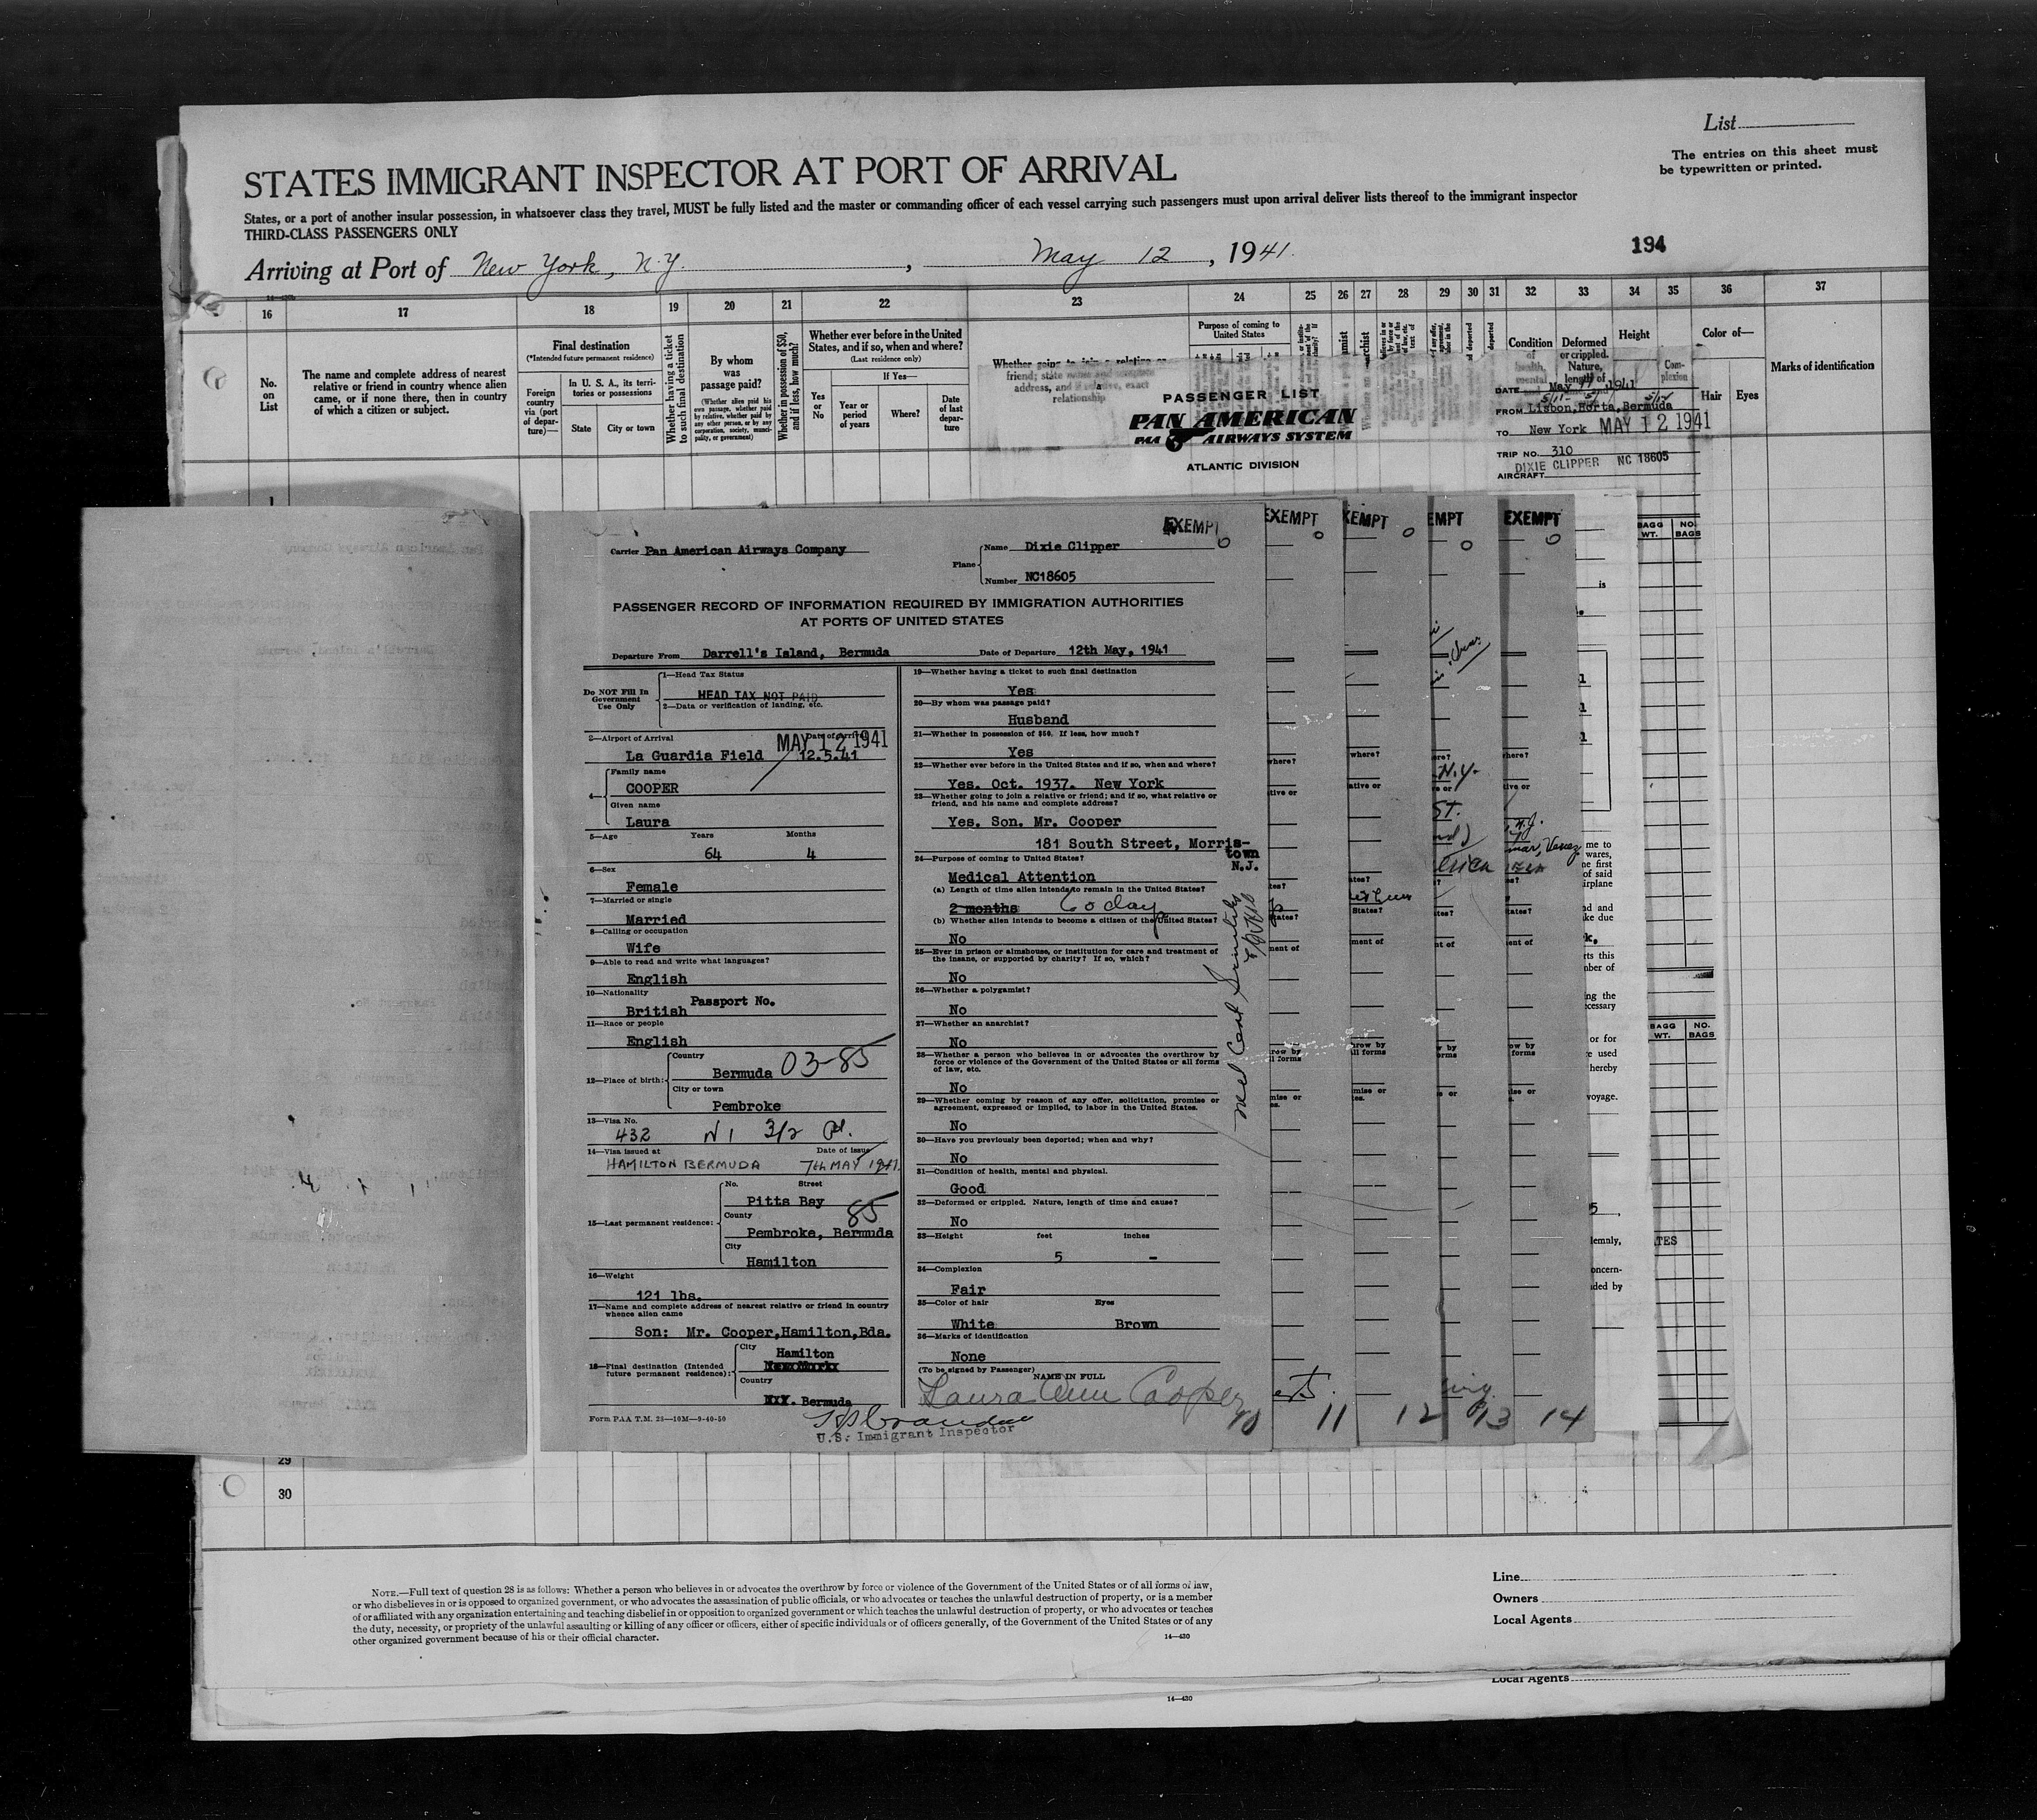 List
The entries on this sheet must
be typewritten or printed.
STATES IMMIGRANT INSPECTOR AT PORT OF ARRIVAL
States, or a port of another insular possession, in whatsoever class they travel, MUST be fully listed and the master or commanding officer of each vessel carrying such passengers must upon arrival deliver lists thereof to the immigrant inspector
THIRD-CLASS PASSENGERS ONLY
194
Arriving at Port of New York, N.Y. , May 12 , 1941.
16 17 18 19 20 21 22 23 24 25 26 27 28 29 30 31 32 33 34 35 36 37
No. on List
The name and complete address of nearest
relative or friend in country whence alien
came, or if none there, then in country
of which a citizen or subject.
Final destination
(*Intended future permanent residence)
Foreign country via (port of departure)—
In U. S. A., its territories or possessions
State
City or town
Whether having a ticket to such final destination
By whom was passage paid?
(Whether alien paid his own passage, whether paid by relative, whether paid by any other person, or by any corporation, society, municipality, or government)
Whether in possession of $50, and if less, how much?
Whether ever before in the United
States, and if so, when and where?
(Last residence only)
If Yes—
Yes or No
Year or period of years
Where?
Date of last departure
Whether going to join a relative or
friend; state name and complete
address, and if relative, exact
relationship
Purpose of coming to
United States
Condition of health, mental
Deformed or crippled. Nature, length of
Height
Complexion
Color of—
Hair
Eyes
Marks of identification
PASSENGER LIST
PAN AMERICAN
PAA AIRWAYS SYSTEM
ATLANTIC DIVISION
DATE May 11 1941
FROM Lisbon, Horta, Bermuda
TO New York MAY 12 1941
TRIP NO. 310
AIRCRAFT DIXIE CLIPPER NC 18605
BAGG WT.
NO. BAGS
EXEMPT
EXEMPT
EXEMPT
EMPT
EXEMPT
Carrier Pan American Airways Company
Plane
Name Dixie Clipper
Number NC18605
PASSENGER RECORD OF INFORMATION REQUIRED BY IMMIGRATION AUTHORITIES
AT PORTS OF UNITED STATES
Departure From Darrell's Island, Bermuda
Date of Departure 12th May, 1941
Do NOT Fill In
Government
Use Only
1—Head Tax Status
HEAD TAX NOT PAID
2—Data or verification of landing, etc.
3—Airport of Arrival Date of Arrival
MAY 12 1941
La Guardia Field 12.5.41
4—
Family name
COOPER
Given name
Laura
5—Age Years Months
64 4
6—Sex
Female
7—Married or single
Married
8—Calling or occupation
Wife
9—Able to read and write what languages?
English
10—Nationality
Passport No.
British
11—Race or people
English
12—Place of birth:
Country
Bermuda 03-85
City or town
Pembroke
13—Visa No.
432 N1 3/2
14—Visa issued at Date of issue
HAMILTON BERMUDA 7th MAY 1941.
15—Last permanent residence:
No. Street
Pitts Bay
County 85
Pembroke, Bermuda
City
Hamilton
16—Weight
121 lbs.
17—Name and complete address of nearest relative or friend in country
whence alien came
Son: Mr. Cooper, Hamilton, Bda.
18—Final destination (Intended
future permanent residence):
City
Hamilton
Country
Bermuda
Form PAA T.M. 23—10M—9-40-50
U.S. Immigrant Inspector
19—Whether having a ticket to such final destination
Yes
20—By whom was passage paid?
Husband
21—Whether in possession of $50. If less, how much?
Yes
22—Whether ever before in the United States and if so, when and where?
Yes. Oct. 1937. New York
23—Whether going to join a relative or friend; and if so, what relative or
friend, and his name and complete address?
Yes. Son. Mr. Cooper
181 South Street, Morris-
town
N.J.
24—Purpose of coming to United States?
Medical Attention
(a) Length of time alien intends to remain in the United States?
2 months 60 days
(b) Whether alien intends to become a citizen of the United States?
No
25—Ever in prison or almshouse, or institution for care and treatment of
the insane, or supported by charity? If so, which?
No
26—Whether a polygamist?
No
27—Whether an anarchist?
No
28—Whether a person who believes in or advocates the overthrow by
force or violence of the Government of the United States or all forms
of law, etc.
No
29—Whether coming by reason of any offer, solicitation, promise or
agreement, expressed or implied, to labor in the United States.
No
30—Have you previously been deported; when and why?
No
31—Condition of health, mental and physical.
Good
32—Deformed or crippled. Nature, length of time and cause?
No
33—Height feet inches
5 —
34—Complexion
Fair
35—Color of hair Eyes
White Brown
36—Marks of identification
None
(To be signed by Passenger)
NAME IN FULL
Laura Ann Cooper
10 11 12 13 14
29
30
NOTE.—Full text of question 28 is as follows: Whether a person who believes in or advocates the overthrow by force or violence of the Government of the United States or of all forms of law,
or who disbelieves in or is opposed to organized government, or who advocates the assassination of public officials, or who advocates or teaches the unlawful destruction of property, or is a member
of or affiliated with any organization entertaining and teaching disbelief in or opposition to organized government or which teaches the unlawful destruction of property, or who advocates or teaches
the duty, necessity, or propriety of the unlawful assaulting or killing of any officer or officers, either of specific individuals or of officers generally, of the Government of the United States or of any
other organized government because of his or their official character.
14—430
Line
Owners
Local Agents
Local Agents
14—430